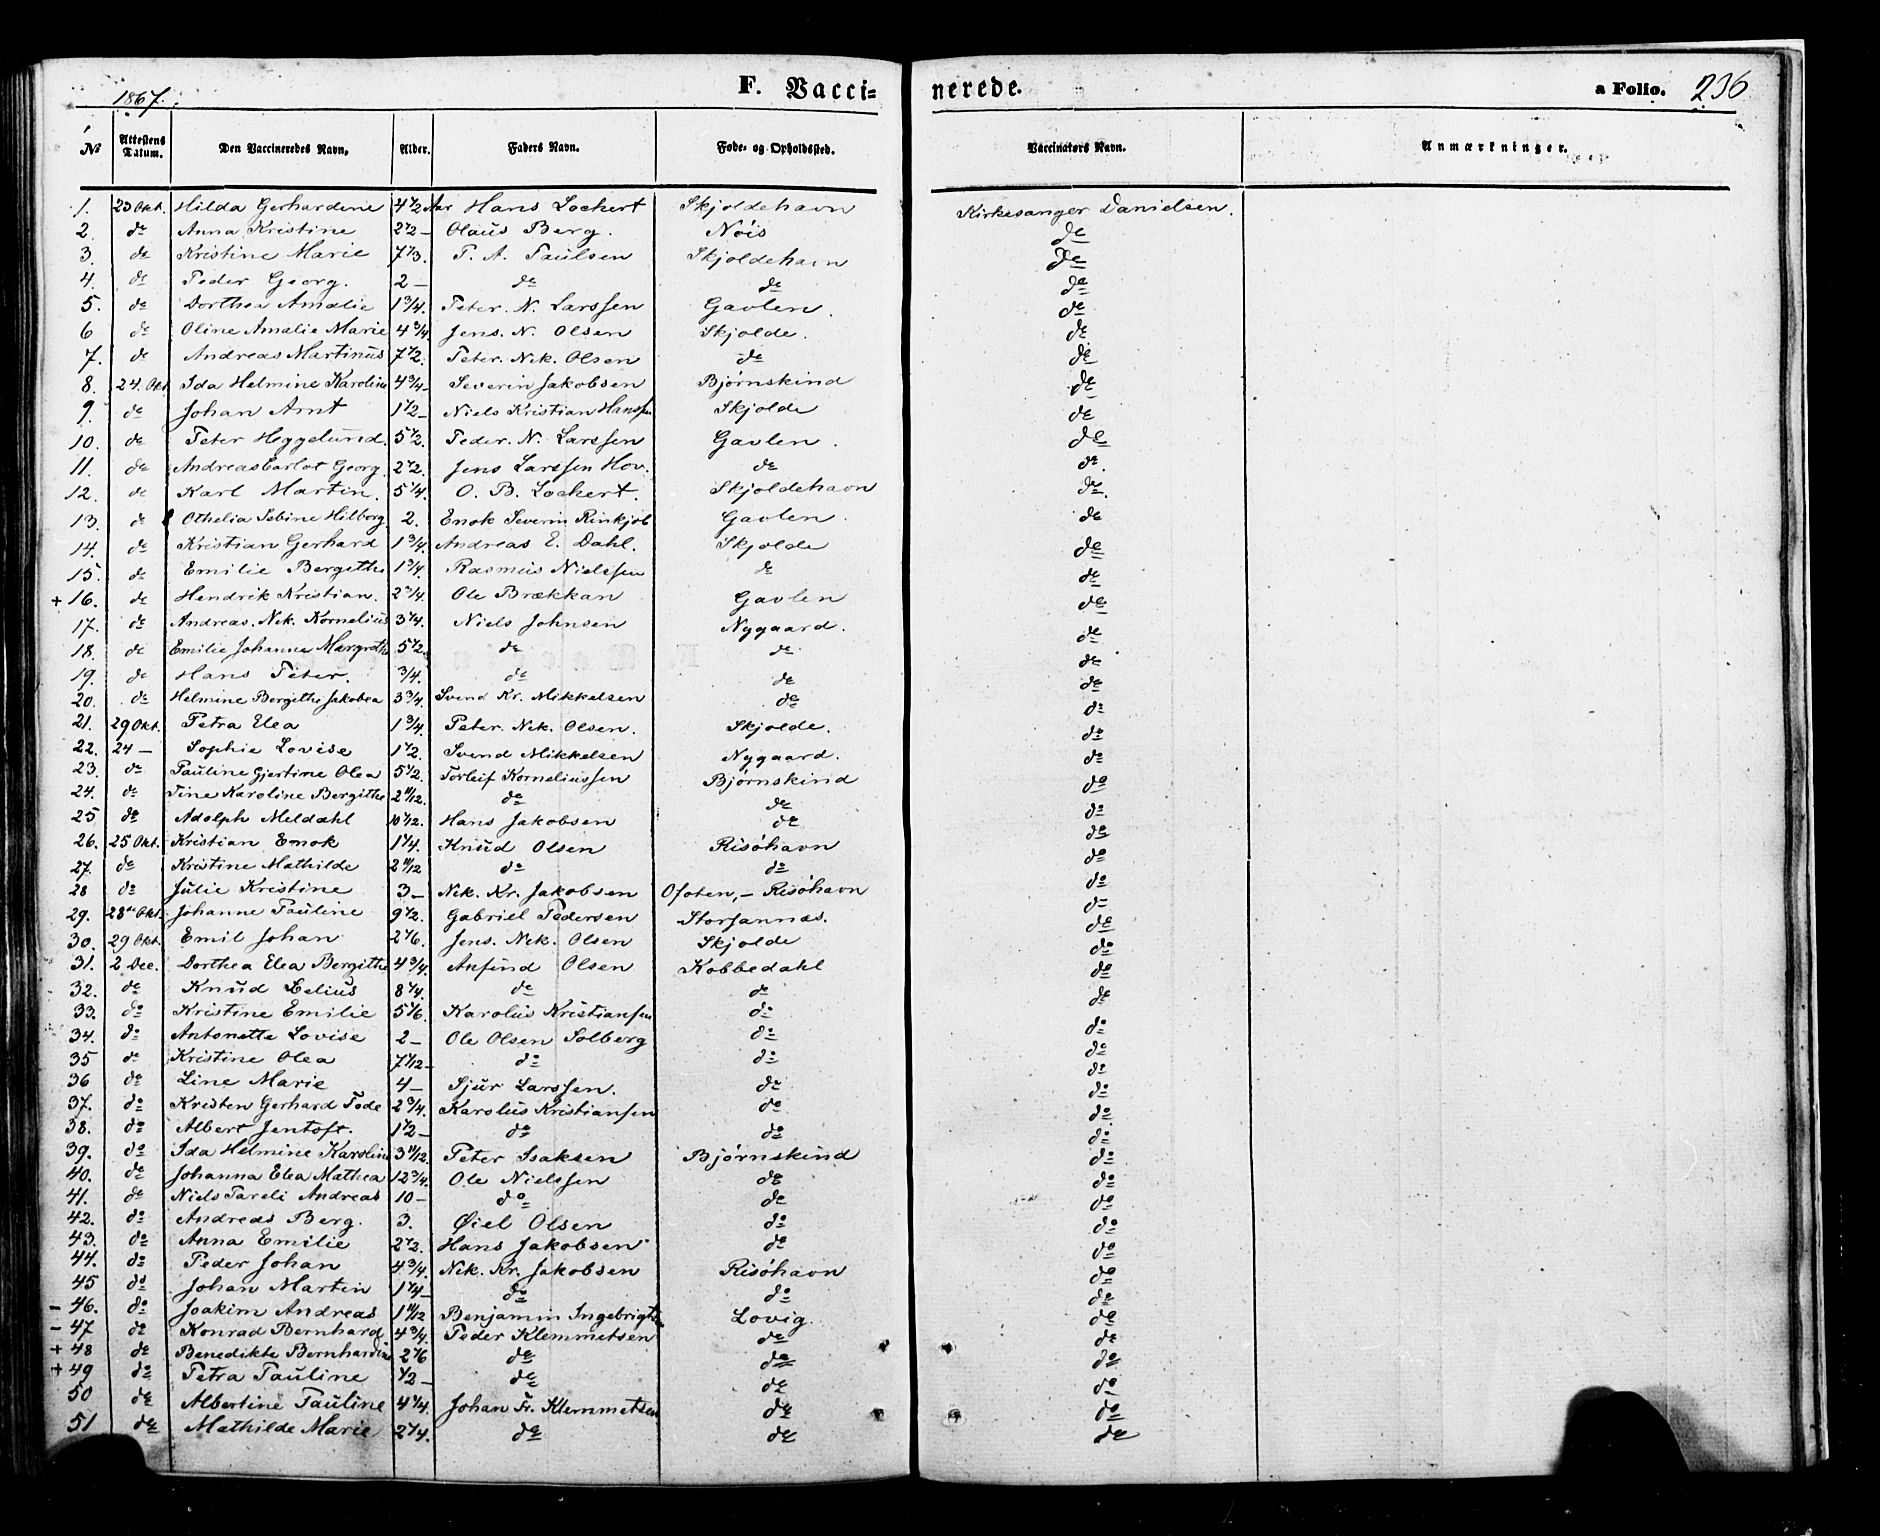 1867. F. Vacci- nerede. a Folio. 236
№ Attestens Datum. Den Vaccineredes Navn. Alder. Faders Navn. Føde- og Opholdssted. Vaccinators Navn. Anmærkninger.
1. 23 Okt. Hilda Gerhardine 4 1/2 Aar Hans Lockert Skjoldehavn Kirkesanger Danielsen.
2. do Anna Kristine 2 1/2 — Olaus Berg. Nöis do
3. do Kristine Marie 7 1/3. P. A. Paulsen Skjoldehavn do
4. do Peder Georg. 2 — do do do
5. do Dorthea Amalie 1 3/4. Peter. N. Larssen Gavlen. do
6 do Oline Amalie Marie 4 3/4. Jens. N. Olsen Skjolde. do
7. do Andreas Martinus 7 1/2. Peter. Nik. Olsen do do
8. 24. Okt Ida Helmine Karoline 4 3/4 — Severin Jakobsen Bjørnskind do
9. do Johan Arnt 1 1/2 — Niels Kristian Hanssen Skjolde do
10. do Peter Heggelund. 5 1/2. Peder. N. Larssen Gavlen. do
11. do Andreas Carlot Georg. 2 1/2. Jens Larssen Hov. do do.
12. do Karl Martin. 5 1/4. O. B. Lockert. Skjoldehavn do.
13. do Othelia Sebine Hilborg 2. Enok Severin Rinkjøb Gavlen. do
14. do Kristian Gerhard 1 3/4. Andreas E. Dahl. Skjolde do
15. do Emilie Bergithe 1 3/4. Rasmus Nielssen do do
+ 16. do Hendrik Kristian. 2 3/4. Ole Brækkan Gavlen do
17. do Andreas. Nik. Kornelius 3 1/4. Niels Johnsen Nygaard. do
18. do Emilie Johanne Margrethe 5 1/2. do do do
19. do Hans Peter. 3/4. do do do
20. do Helmine Bergithe Jakobea 3 3/4. Svend Kr. Mikkelsen do do
21. 29 Okt. Petra Elea 1 3/4. Peter. Nik. Olsen. Skjolde. do
22. 24 — Sophie Lovise 1 1/2. Svend Mikkelsen Nygaard. do
23. do Pauline Gjertine Olea 5 1/2. Torleif Korneliussen Bjørnskind do
24. do Tine Karoline Bergithe 2 11/12. do do do
25 do Adolph Meldahl 10 1/12. Hans Jakobsen do do
26. 25 Okt. Kristian Enok 1 1/4. Knud Olsen Risöhavn do
27. do Kristine Mathilde 2 11/12 do do do
28 do Julie Kristine 3 — Nik. Kr. Jakobsen Ofoten, — Risöhavn do
29. 28de Okt. Johanne Pauline 9 1/2. Gabriel Pedersen Storjannæs. do
30. 29 Okt. Emil Johan 2 1/6. Jens. Nik. Olsen Skjolde do
31. 2 Dec. Dorthea Elea Bergithe 4 3/4. Anfind Olsen Kobbedahl do
32. do Knud Eelius 8 1/4. do do do
33. do Kristine Emilie 5 1/6. Karolus Kristiansen do do
34. do Antonette Lovise 2 — Ole Olsen Solberg do do
35 do Kristine Olea 7 1/12 — do do do
36 do Line Marie 4 — Sjur Larssen. do do
37. do Kristen Gerhard Tode 2 3/4. Karolus Kristiansen do do
38. do Albert Jentoft. 1 1/2 — do do do
39. do Ida Helmine Karoline 3 11/12. Peter Isaksen Bjørnskind do
40. do Johanna Elea Mathea 12 3/4. Ole Nielssen do do
41. do Niels Pareli Andreas 10 — do do do
42. do Andreas Berg. 3. Øiel Olsen do do
43. do Anna Emilie 2 1/2. Hans Jakobsen do do
44. do Peder Johan 4 3/4. Nik. Kr. Jakobsen Risöhavn do
45 do Johan Martin 1 1/4 — do do do
– 46. do Joakim Andreas 1 11/12 Benjamin Ingebrigts Lovig. do
– 47 do Konrad Bernhard 4 3/4. Peder Klemmetsen do do
+ 48 do Benedikte Bernhardine 2 1/6 do do do
+ 49 do Petra Pauline 1/2 — do do do
50 do Albertine Pauline 4 1/4. Johan Fr. Klemmetsen do do
51 do Mathilde Marie 2 1/4. do do do